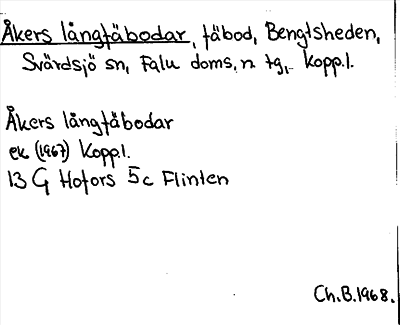 Åkers långfäbodar, fäbod, Bengtsheden,
Svärdsjö sn, Falu doms. n tg, Kopp.l.
Åkers långfäbodar
ek (1967) Kopp.l.
13 G Hofors 5c Flinten
Ch.B.1968.